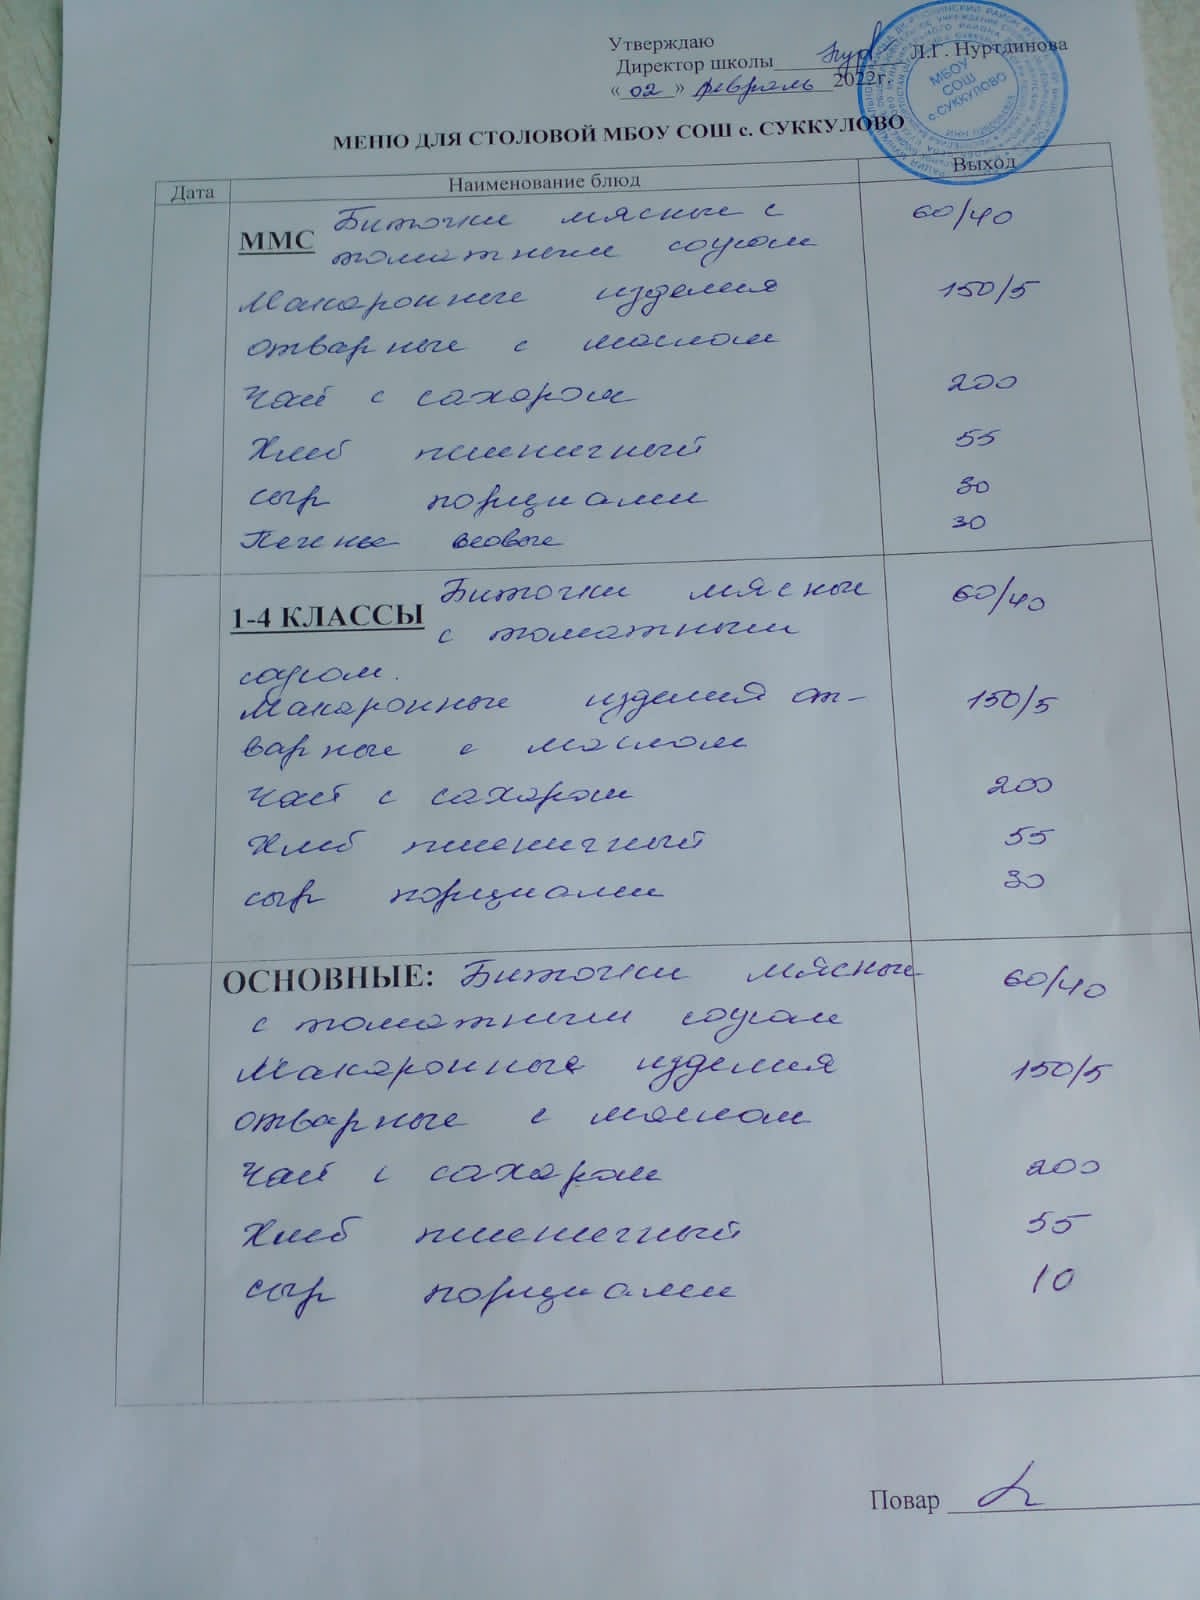 Утверждаю
Директор школы Л.Г. Нуртдинова
« 02 » февраль 2022г.
МБОУ
СОШ
с.СУККУЛОВО
МЕНЮ ДЛЯ СТОЛОВОЙ МБОУ СОШ с. СУККУЛОВО
Дата Наименование блюд Выход
ММС Биточки мясные с 60/40
томатным соусом
Макаронные изделия 150/5
отварные с маслом
Чай с сахаром 200
Хлеб пшеничный 55
сыр порциами 30
Печенье весовые 30
1-4 КЛАССЫ Биточки мясные 60/40
с томатным
соусом.
Макаронные изделия от- 150/5
варные с маслом
Чай с сахаром 200
Хлеб пшеничный 55
сыр порциами 30
ОСНОВНЫЕ: Биточки мясные 60/40
с томатным соусом
Макаронные изделия 150/5
отварные с маслом
Чай с сахаром 200
Хлеб пшеничный 55
сыр порциами 10
Повар